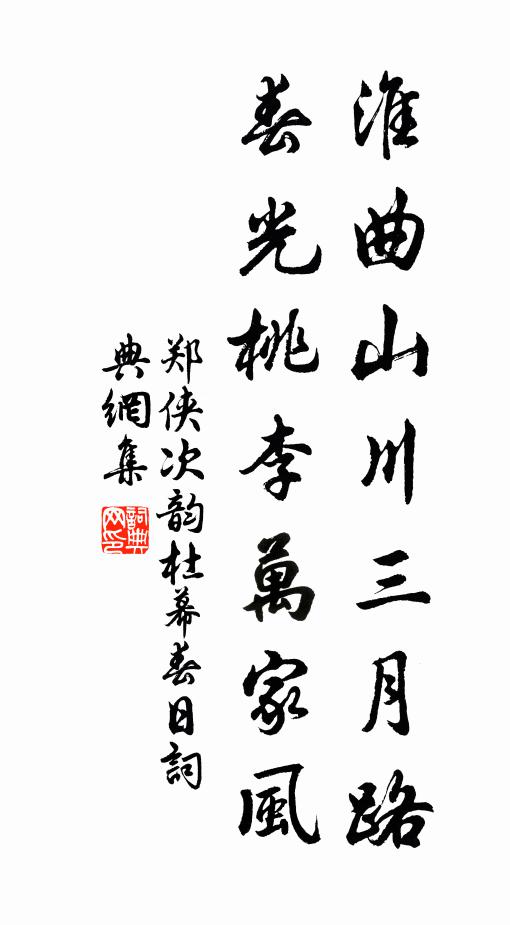 淮曲山川三月路
春光桃李萬家風
郑侠次韵杜幕春日詞
典網集
詞典网印